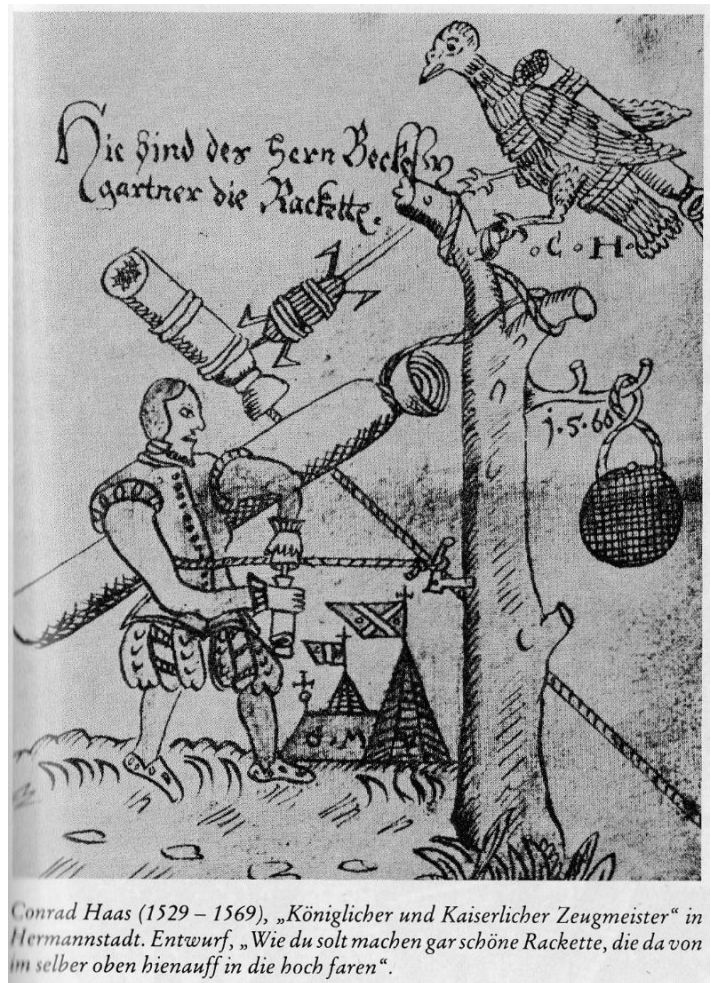 Hie sind des Hern
gartner die Rackette.
. C . H .
j.5.60
S . M
Conrad Haas (1529 – 1569), „Königlicher und Kaiserlicher Zeugmeister“ in
Hermannstadt. Entwurf, „Wie du solt machen gar schöne Rackette, die da von
im selber oben hienauff in die hoch faren“.